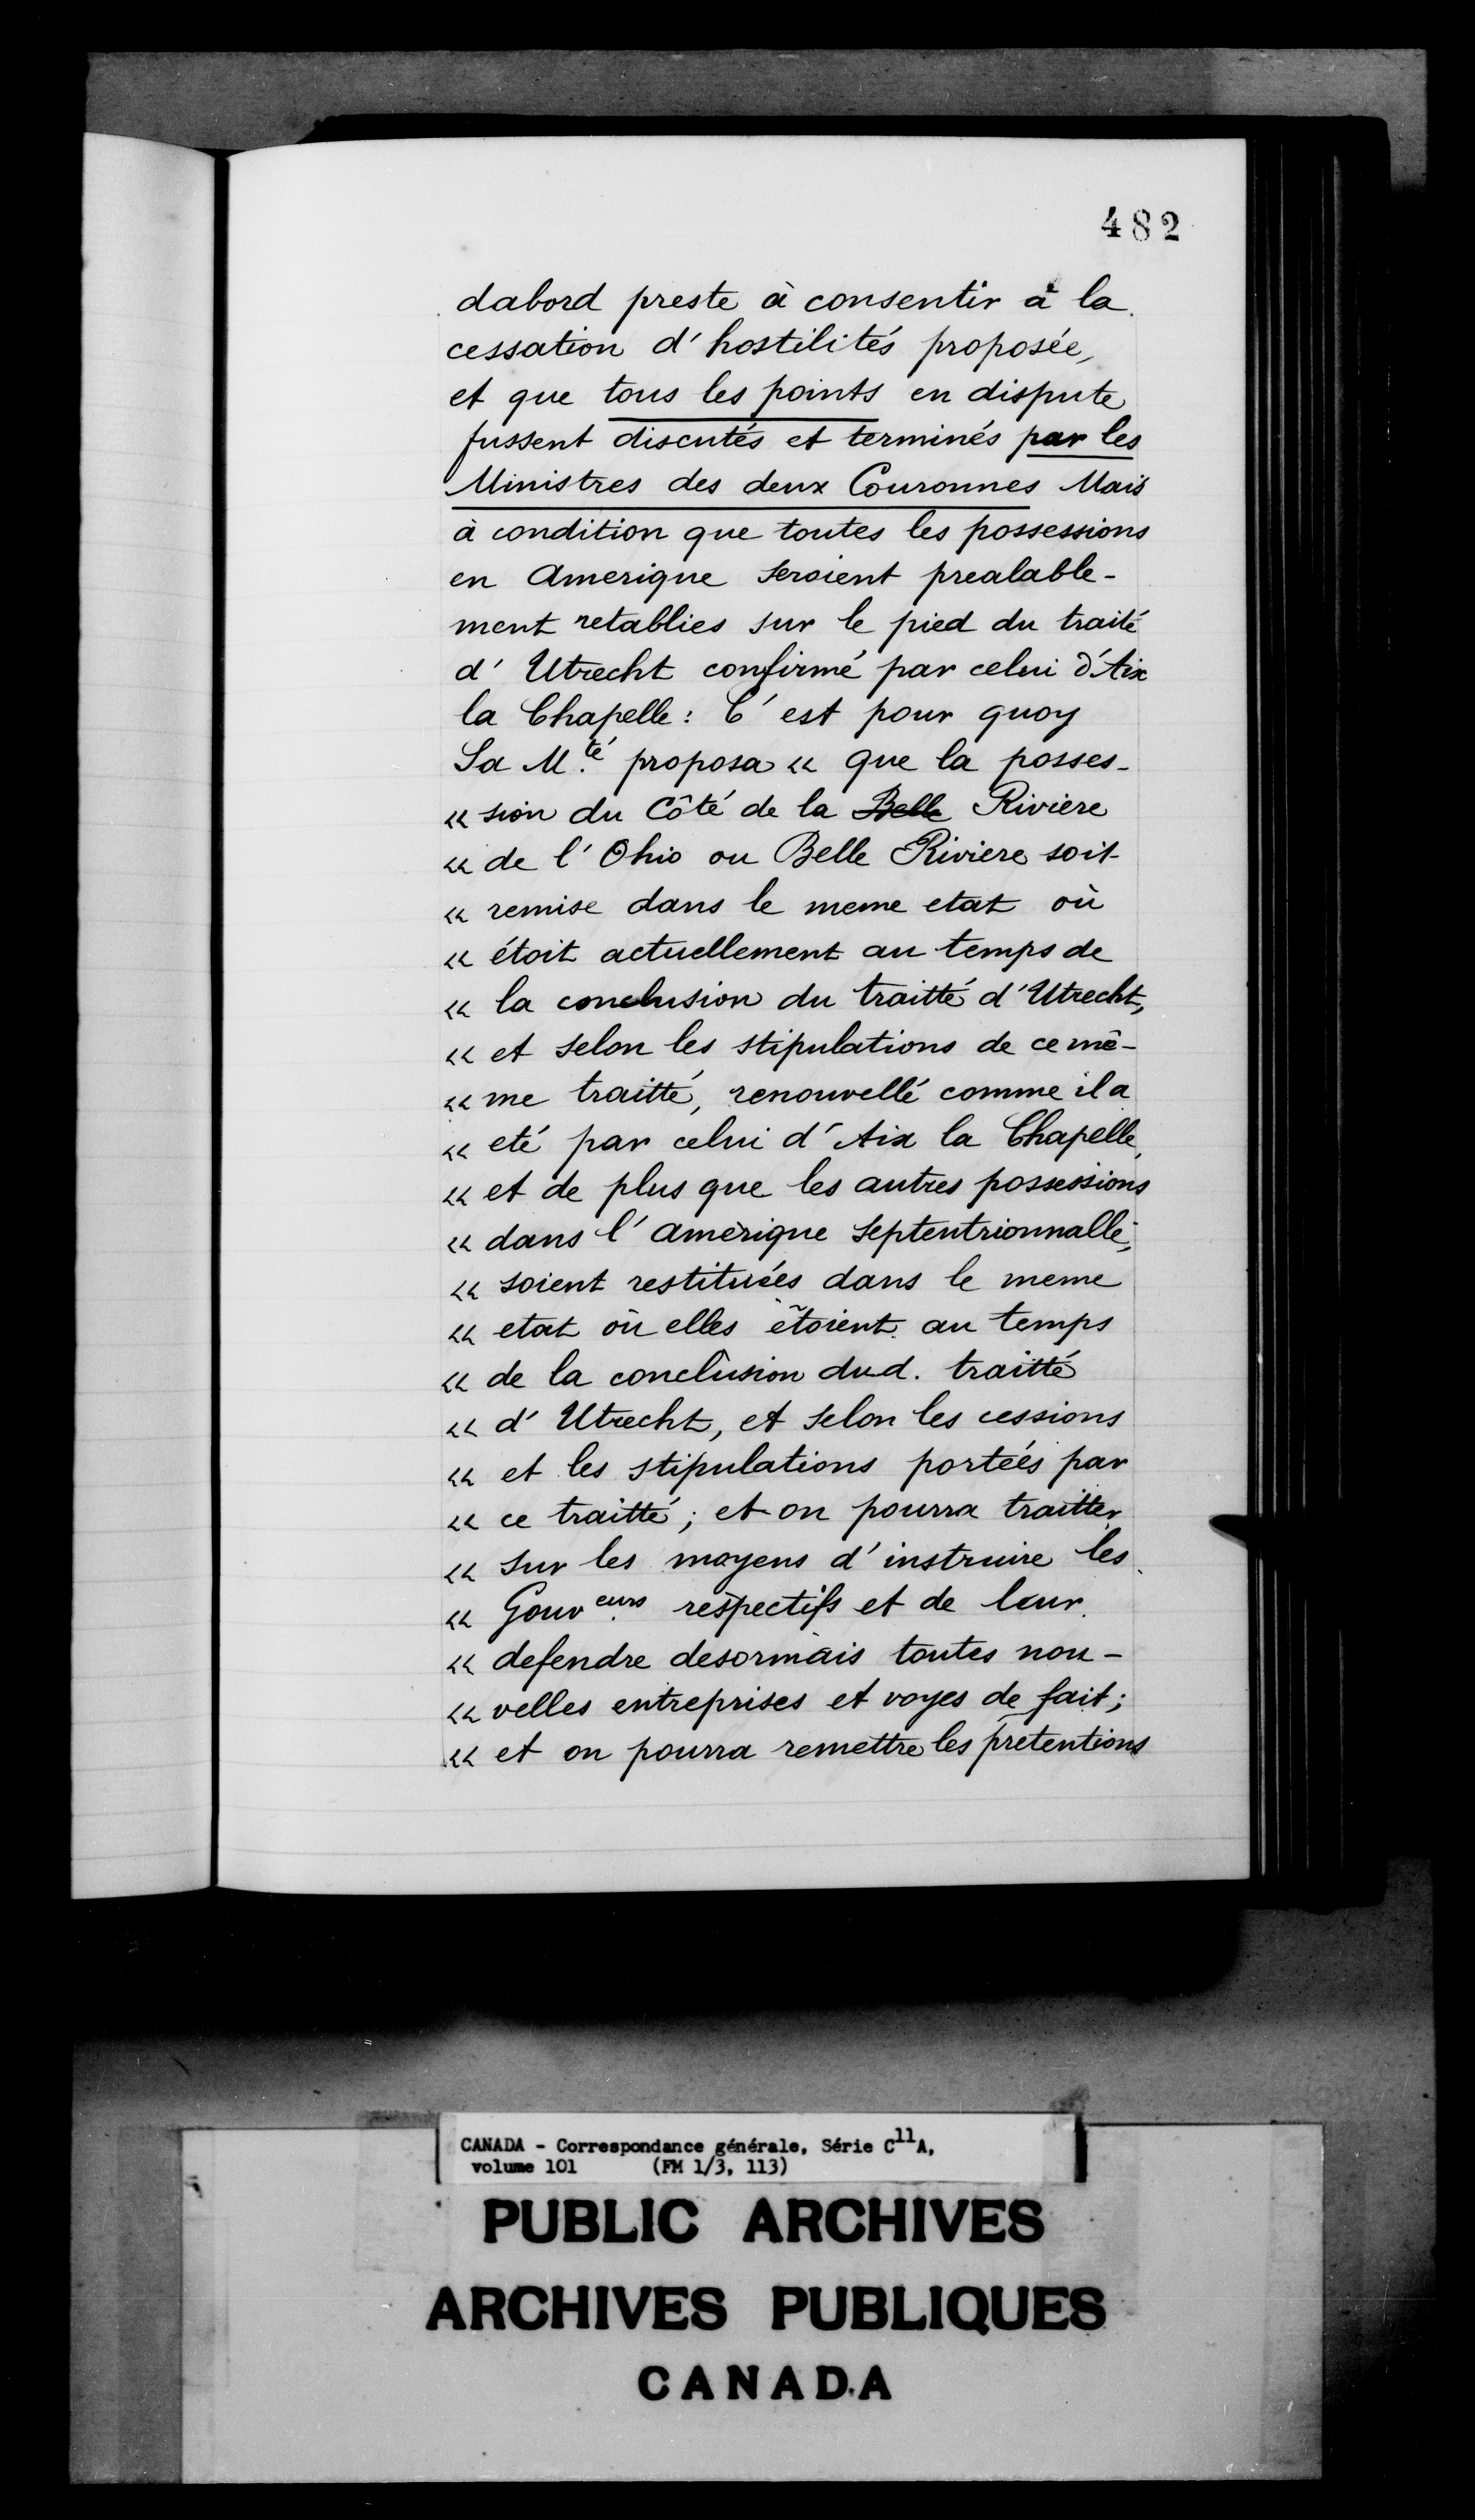 482
dabord preste à consentir à la
cessation d'hostilités proposée,
et que tous les points en dispute
fussent discutés et terminés par les
Ministres des deux Couronnes Mais
à condition que toutes les possessions
en Amerique seroient prealable-
ment retablies sur le pied du traité
d'Utrecht confirmé par celui d'Aix
la Chapelle: C'est pour quoy
Sa M.té proposa « que la posses-
« sion du Côté de la Belle Riviere
« de l'Ohio ou Belle Riviere soit
« remise dans le meme etat où
« étoit actuellement au temps de
« la conclusion du traitté d'Utrecht,
« et selon les stipulations de ce mê-
« me traitté, renouvellé comme il a
« eté par celui d'Aix la Chapelle,
« et de plus que les autres possessions
« dans l'amèrique Septentrionnalle,
« soient restituées dans le meme
« etat où elles étoient au temps
« de la conclusion dud. traitté
« d'Utrecht, et selon les cessions
« et les stipulations porteés par
« ce traitté; et on pourra traitter
« sur les moyens d'instruire les
« Gouv.eurs respectifs et de leur
« defendre desormais toutes nou-
« velles entreprises et voyes de fait;
« et on pourra remettre les prétentions
CANADA - Correspondance générale, Série C11A,
volume 101 (FM 1/3, 113)
PUBLIC ARCHIVES
ARCHIVES PUBLIQUES
CANADA